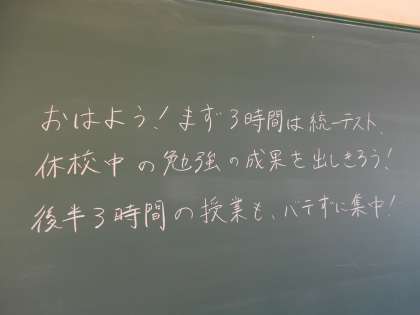 おはよう!まず3時間は統一テスト、
休校中の勉強の成果を出しきろう!
後半3時間の授業も、バテずに集中!